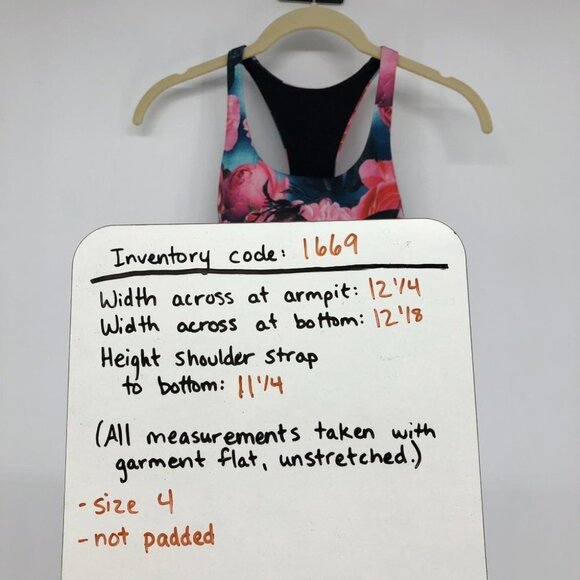 Inventory code: 1669
Width across at armpit: 12 1/4
Width across at bottom: 12 1/8
Height shoulder strap
to bottom: 11 1/4
(All measurements taken with
garment flat, unstretched.)
- size 4
- not padded